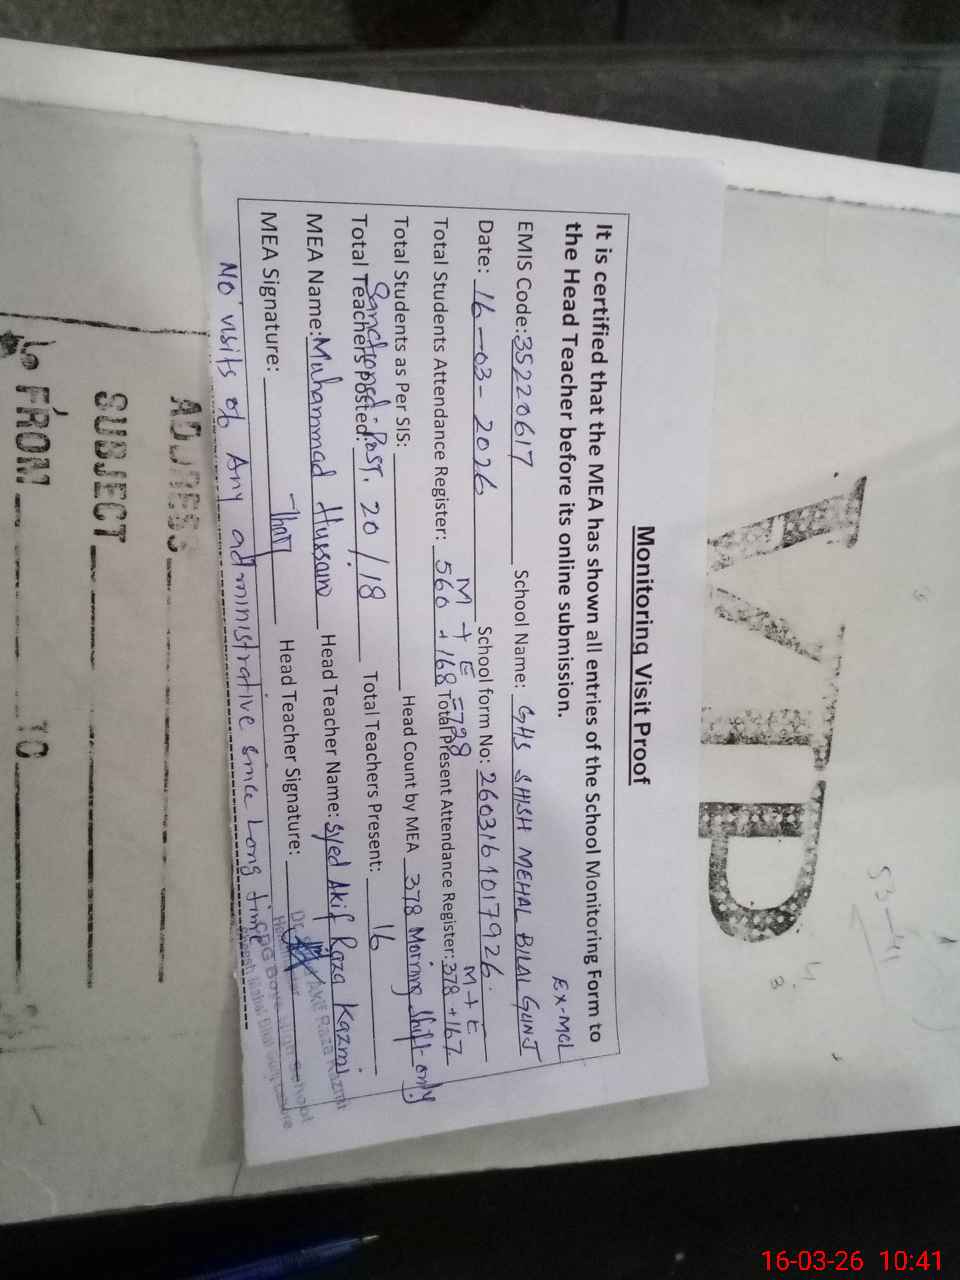 Monitoring Visit Proof
It is certified that the MEA has shown all entries of the School Monitoring Form to
the Head Teacher before its online submission.
Ex-MCL
EMIS Code: 35220617 School Name: GHS SHISH MEHAL BILAL GUNJ
Date: 16-03-2026 School form No: 2603161017926.
M + E M + E
Total Students Attendance Register: 560 + 168 = 728 Total Present Attendance Register: 378 + 167
Total Students as Per SIS: Head Count by MEA 378 Morning Shift only
Sanctioned-Post. 20 / 18
Total Teachers Posted: Total Teachers Present: 16
MEA Name: Muhammad Hussain Head Teacher Name: Syed Akif Raza Kazmi
MEA Signature: Head Teacher Signature:
No visits of Any administrative since Long time
Akif Raza Kazmi
Boys High School
VIP
53-41
ADDRESS
SUBJECT
FROM TO
16-03-26 10:41